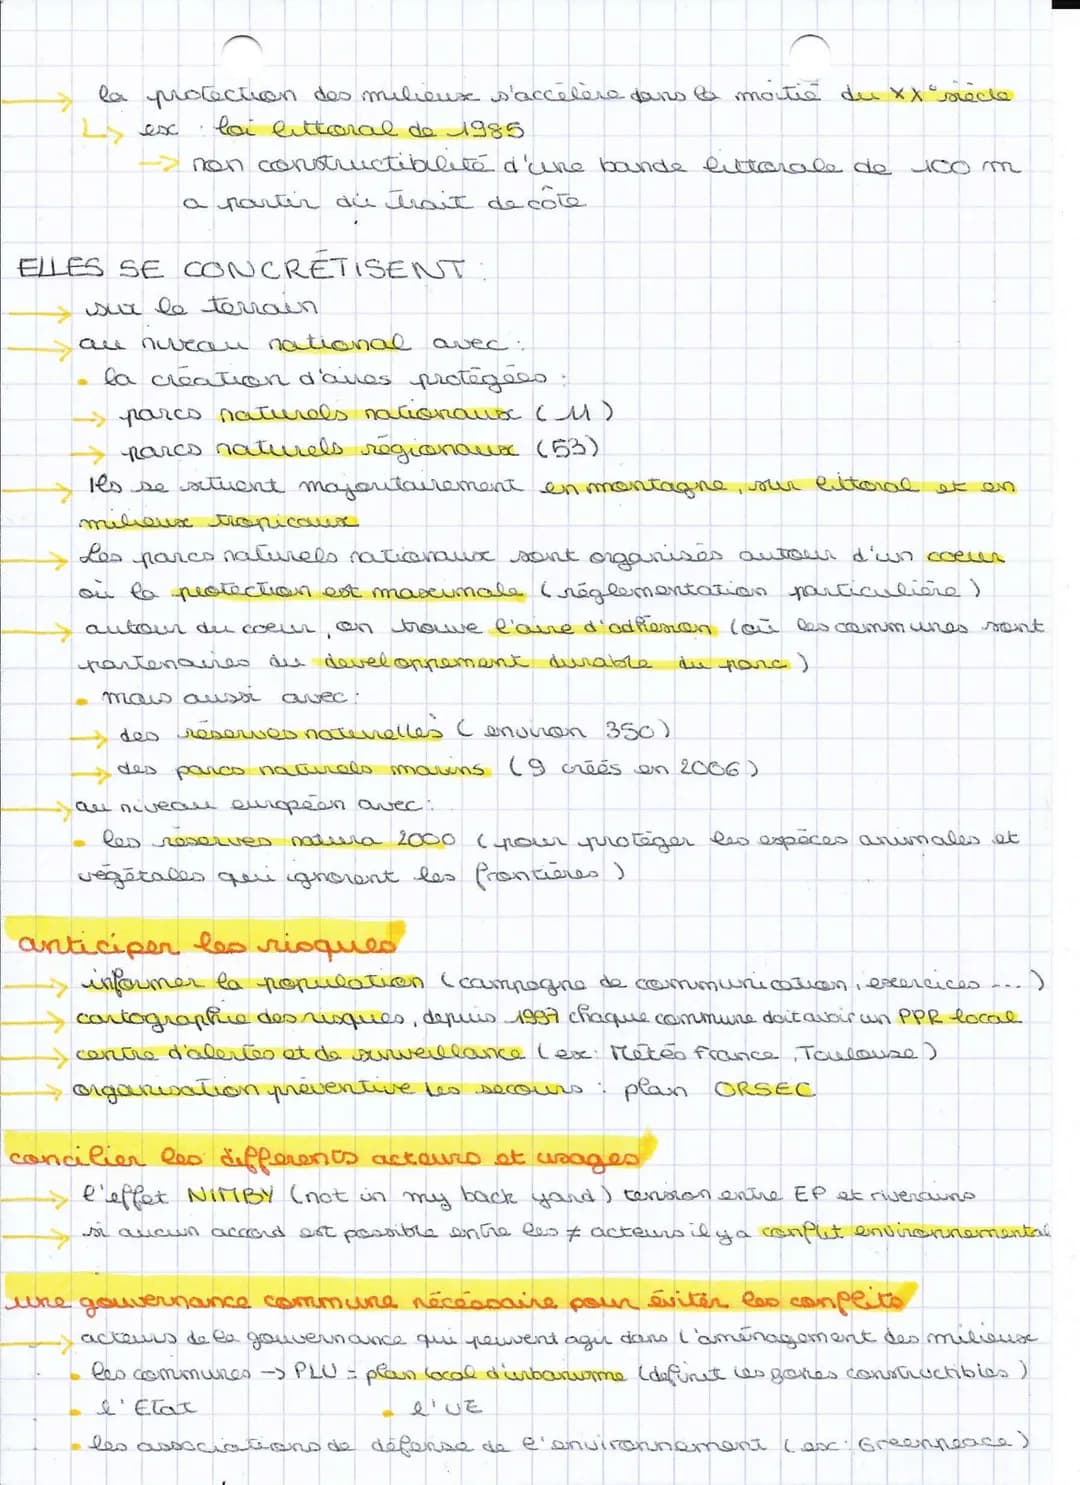 → la protection des milieux s'accélère dans la moitié du XX° siècle
↳ ex : loi littoral de 1985
→ non constructibilité d'une bande littorale de 100 m
a partir du trait de côte
ELLES SE CONCRÉTISENT :
→ sur le terrain
→ au niveau national avec :
• la création d'aires protégées :
→ parcs naturels nationaux (11)
→ parcs naturels régionaux (53)
→ Ils se situent majoritairement en montagne, sur littoral et en
milieux tropicaux
→ Les parcs naturels nationaux sont organisés autour d'un coeur
où la protection est maximale (réglementation particulière)
→ autour du coeur, on trouve l'aire d'adhésion (où les communes sont
partenaires du développement durable du parc)
• mais aussi avec :
→ des réserves naturelles (environ 350)
→ des parcs naturels marins (9 créés en 2006)
→ au niveau européen avec :
• les réserves natura 2000 (pour protéger les espèces animales et
végétales qui ignorent les frontières)
anticiper les risques
→ informer la population (campagne de communication, exercices ...)
→ cartographie des risques, depuis 1997 chaque commune doit avoir un PPR local
→ centre d'alertes et de surveillance (ex : Météo France, Toulouse)
→ organisation préventive les secours : plan ORSEC
concilier les différents acteurs et usages
→ l'effet NIMBY (not in my back yard) tension entre EP et riverains
→ si aucun accord est possible entre les ≠ acteurs il y a conflit environnemental
une gouvernance commune nécéssaire pour éviter les conflits
→ acteurs de la gouvernance qui peuvent agir dans l'aménagement des milieux
• les communes → PLU = plan local d'urbanisme (définit les zones constructibles)
• l'Etat • l'UE
• les associations de défense de l'environnement (ex : Greenpeace)